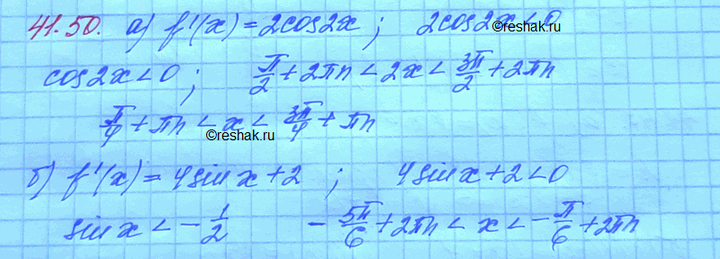 41.50. а) f'(x) = 2cos2x ; 2cos2x < 0
©reshak.ru
cos2x < 0 ; π/2 + 2πn < 2x < 3π/2 + 2πn
π/4 + πn < x < 3π/4 + πn
©reshak.ru
б) f'(x) = 4sin x + 2 ; 4sin x + 2 < 0
sin x < - 1/2 - 5π/6 + 2πn < x < - π/6 + 2πn